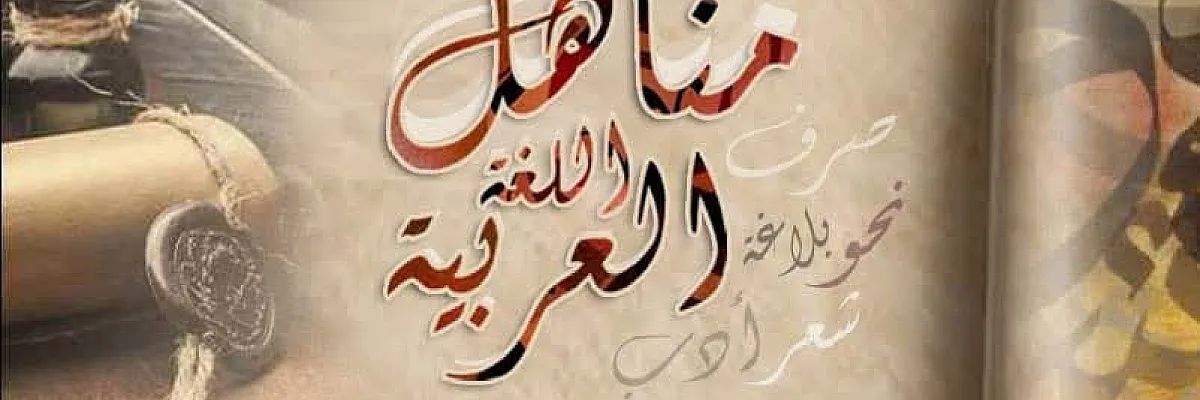 مناهل
اللغة
العربية
صرف
نحو بلاغة
شعر أدب